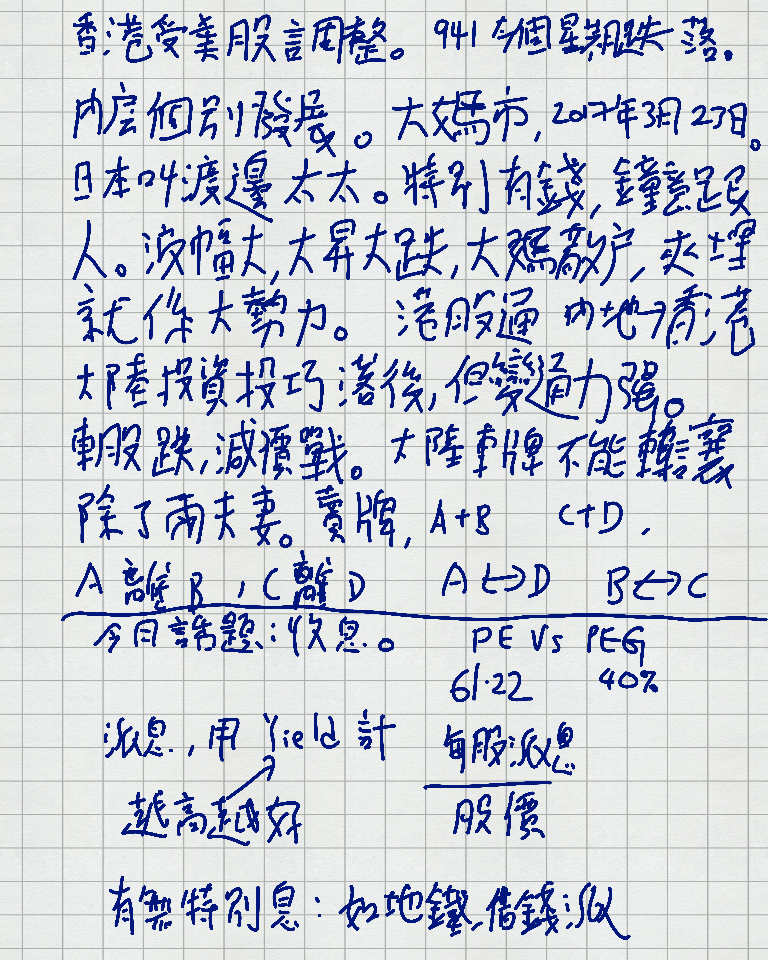 香港受美股調整。 941 今個星期跌落。
內房個別發展。大媽市,2017年3月23日。
日本叫渡邊太太。特別有錢,鐘意跟
人。波幅大,大昇大跌,大媽散户,夾埋
就係大勢力。 港股通 內地→香港
大陸投資技巧落後,但變通力强。
車股跌,減價戰。大陸車牌不能轉讓
除了兩夫妻。賣牌, A+B C+D,
A 離 B , C 離 D A↔D B↔C
今日話題:收息。 PE Vs PEG
61.22 40%
派息,用 Yield 計 每股派息
越高越好 股價
有無特別息:如地鐵,借錢派